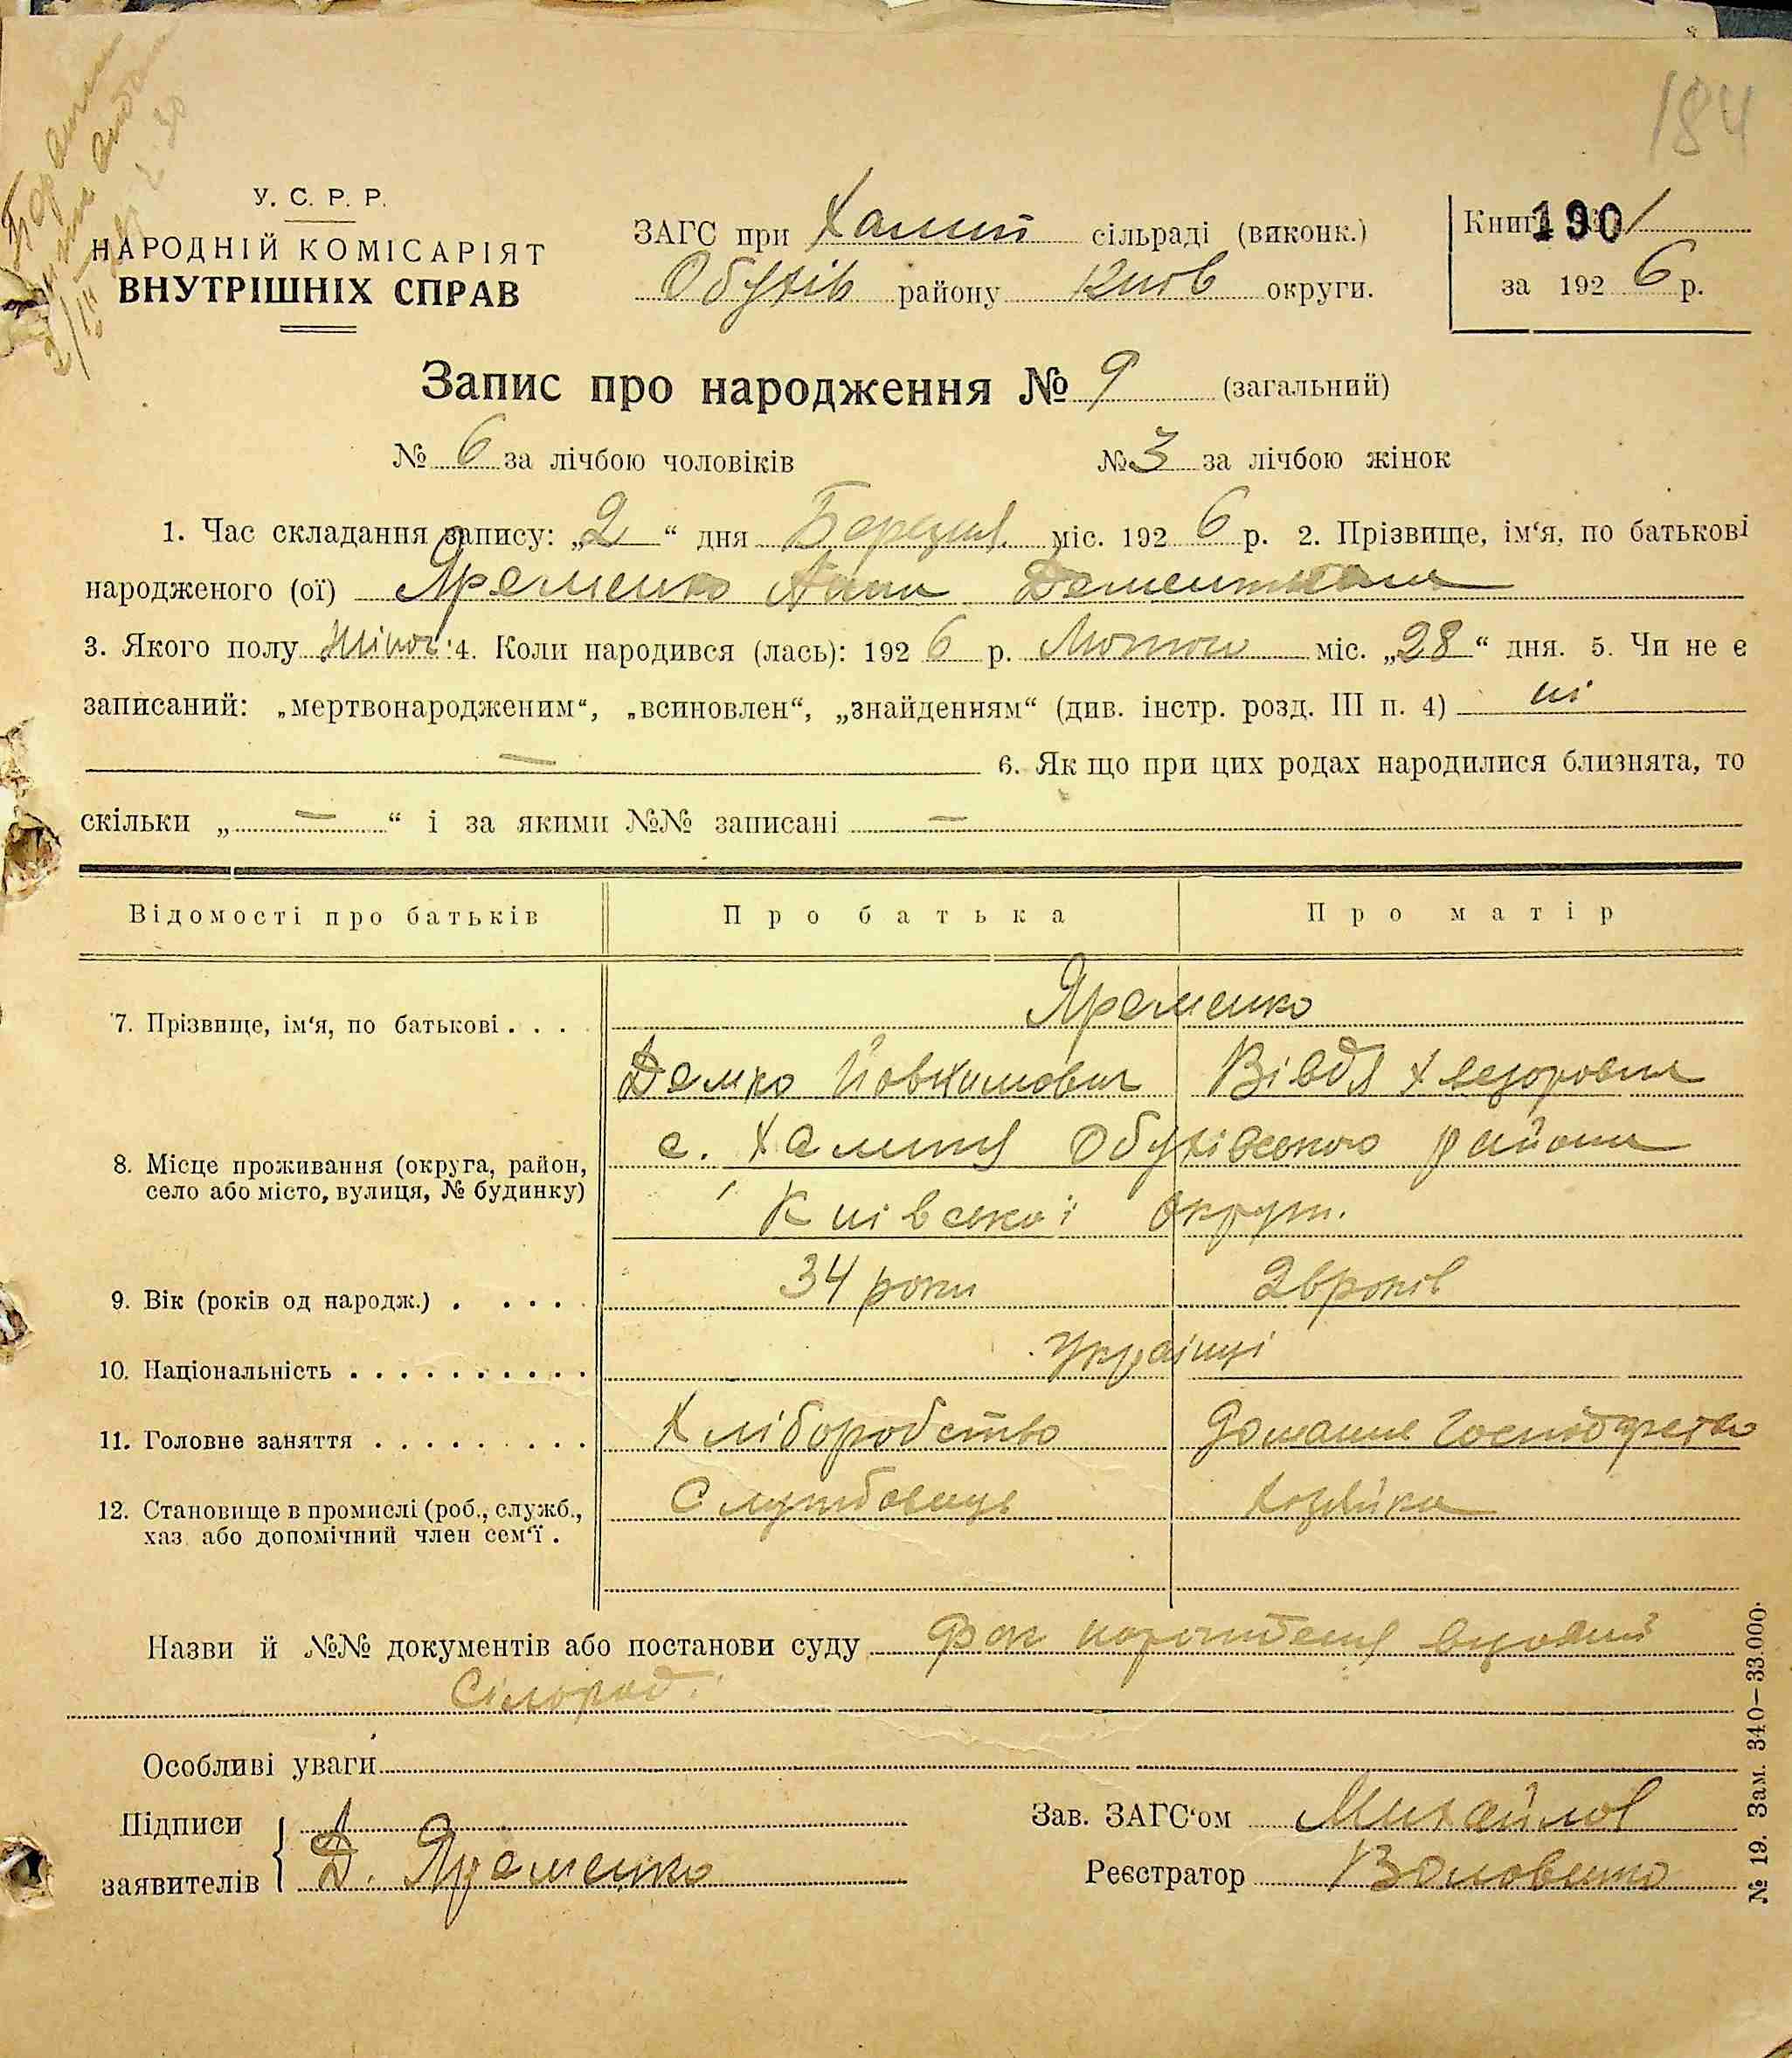 184
У. С. Р. Р.
НАРОДНІЙ КОМІСАРІЯТ
ВНУТРІШНІХ СПРАВ
ЗАГС при Халип сільраді (виконк.)
Обухів району Київ округи.
Книг 190 1
за 1926 р.
Запис про народження № 9 (загальний)
№ 6 за лічбою чоловіків № 3 за лічбою жінок
1. Час складання запису: „2“ дня Березня міс. 1926 р. 2. Прізвище, ім‘я, по батькові
народженого (ої) Яременко Ганна
3. Якого полу Жіноч. 4. Коли народився (лась): 1926 р. Лютого міс. „28“ дня. 5. Чи не є
записаний: „мертвонародженим“, „всиновлен“, „знайденням“ (див. інстр. розд. III п. 4) ні
— 6. Як що при цих родах народилися близнята, то
скільки „ — “ і за якими №№ записані —
Відомості про батьків Про батька Про матір
Яременко
7. Прізвище, ім‘я, по батькові . . .
Демко Йовхимович Вівдя Хведоровна
с. Халипя Обухівського району
8. Місце проживання (округа, район,
село або місто, вулиця, № будинку)
Київської округи.
9. Вік (років од народж.) . . . . 34 роки 26 років
10. Національність . . . . . . . . . . Українці
11. Головне заняття . . . . . . . . . Хліборобство Домашнє Господарство
12. Становище в промислі (роб., служб.,
хаз. або допомічний член сем‘ї .
Службовець Хазяйка
Назви й №№ документів або постанови суду Фак народженя
Сільрад.
Особливі уваги
Підписи
заявителів
Д. Яременко
Зав. ЗАГС‘ом Михайлов
Реєстратор
№ 19. Зам. 340—33.000.